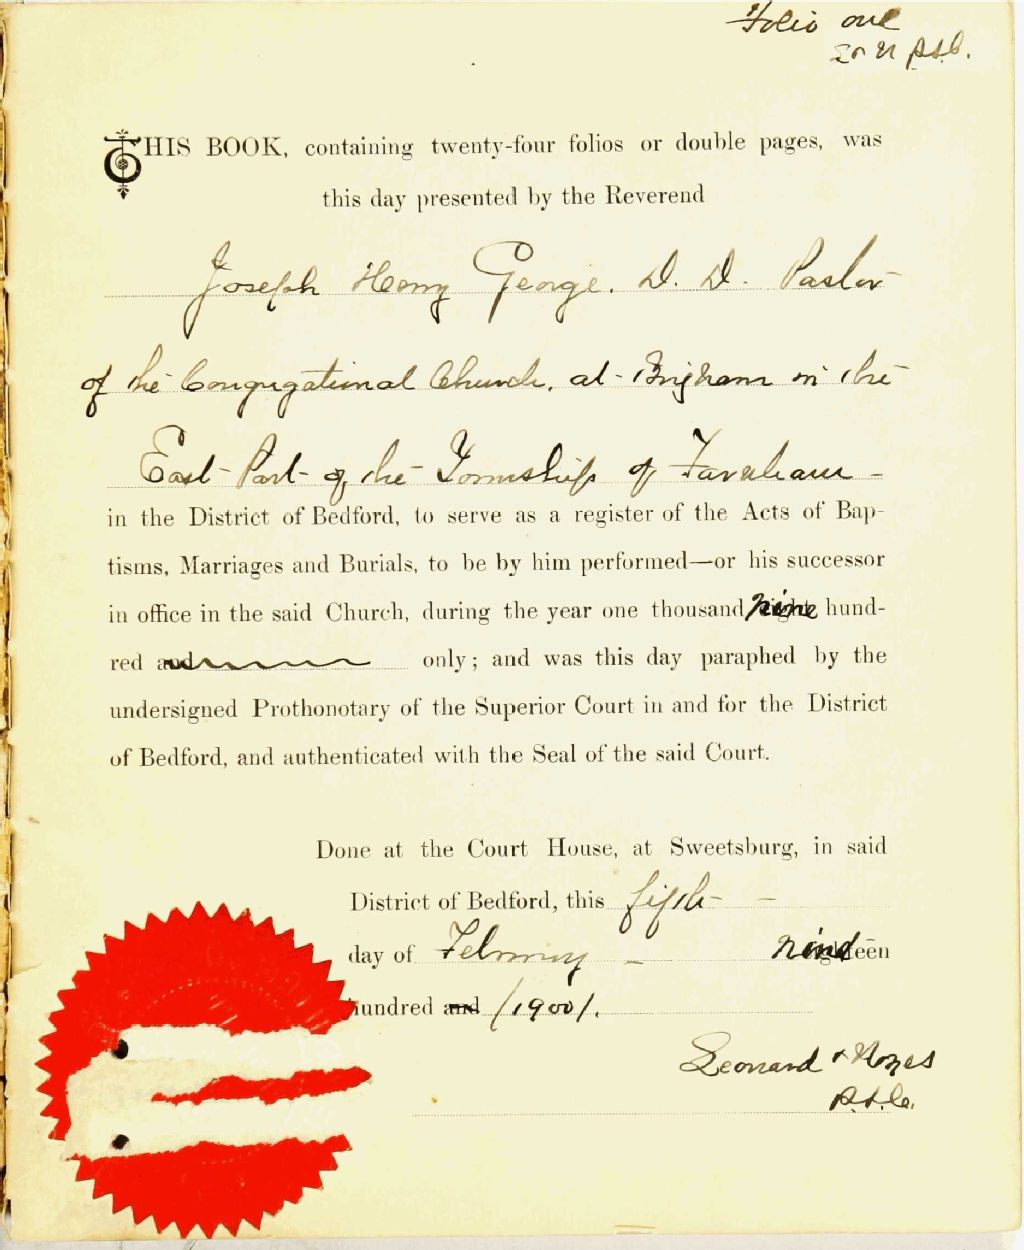 Folio one
L & N P.S.C.
THIS BOOK, containing twenty-four folios or double pages, was
this day presented by the Reverend
Joseph Henry George. D. D. Pastor
of the Congregational Church, at Brigham in the
East Part of the Township of Farnham
in the District of Bedford, to serve as a register of the Acts of Bap-
tisms, Marriages and Burials, to be by him performed—or his successor
in office in the said Church, during the year one thousand nine hund-
red and only; and was this day paraphed by the
undersigned Prothonotary of the Superior Court in and for the District
of Bedford, and authenticated with the Seal of the said Court.
Done at the Court House, at Sweetsburg, in said
District of Bedford, this fifth
day of February nineteen
hundred and (1900).
Leonard & Noyes
P.S.C.